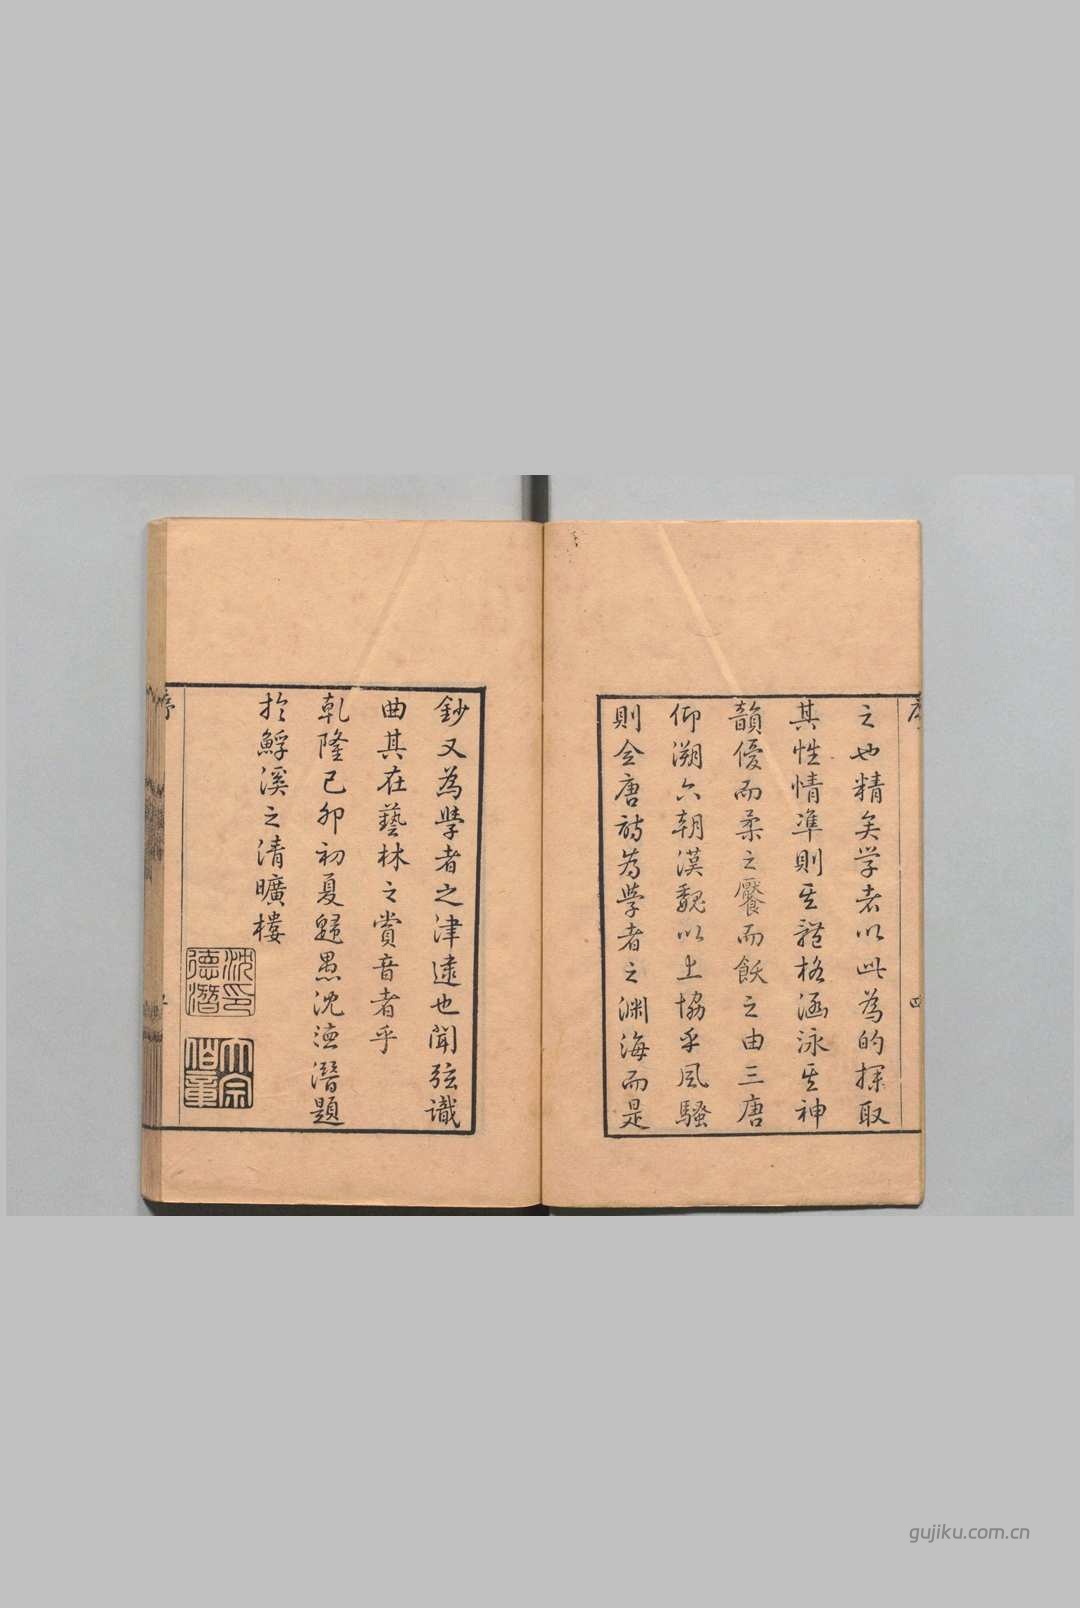 序
四
之也精矣学者以此為的探取
其性情準則其體格涵泳其神
韻優而柔之饜而飫之由三唐
仰溯六朝漢魏以上協乎風騷
則全唐詩為學者之淵海而是
鈔又為學者之津逮也聞弦識
曲其在藝林之賞音者乎
乾隆己卯初夏歸愚沈德潛題
於鰕溪之清曠樓
沈印德潛
大宗伯章
序
gujiku.com.cn